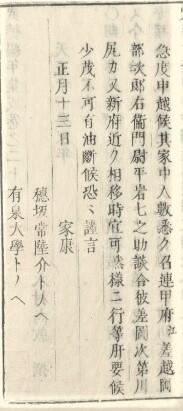 急度申越候其家中人數悉ク召連甲府江差越岡
都次郎右衞門尉平岩七之助談合彼差圖次第川
尻カ又新府近ク相移時宜可然様ニ行等肝要候
少茂不可有油斷候恐々謹言
天正月十三日　家康
穗坂常陸介トノヘ
有泉大學トノヘ